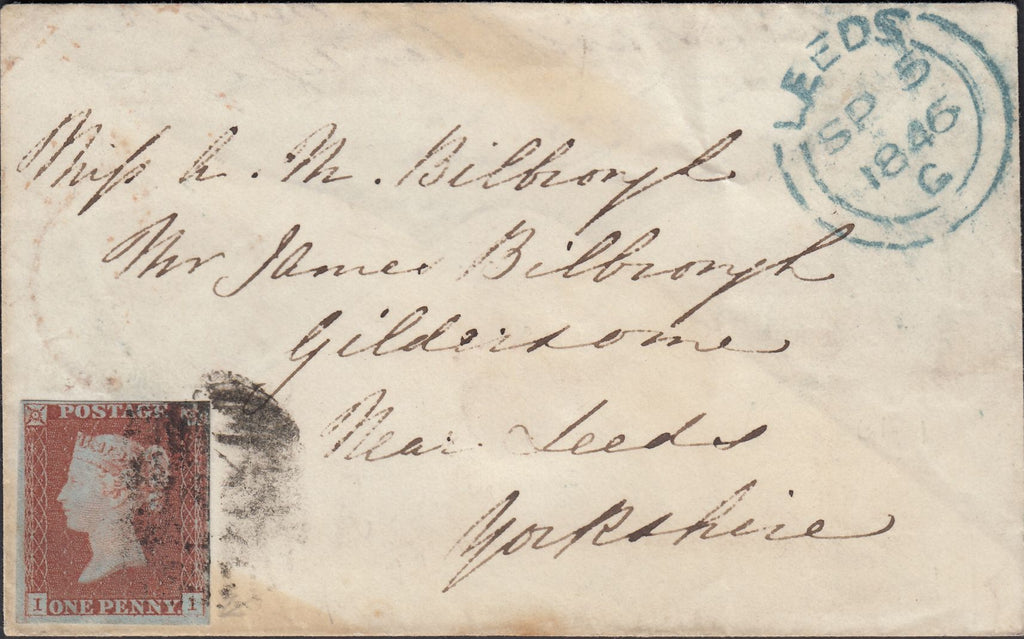 LEEDS
SP 5
1846
G
Miss A. M. Bilbrough
Mr James Bilbrough
Gildersome
Near Leeds
Yorkshire
POSTAGE
I ONE PENNY. I